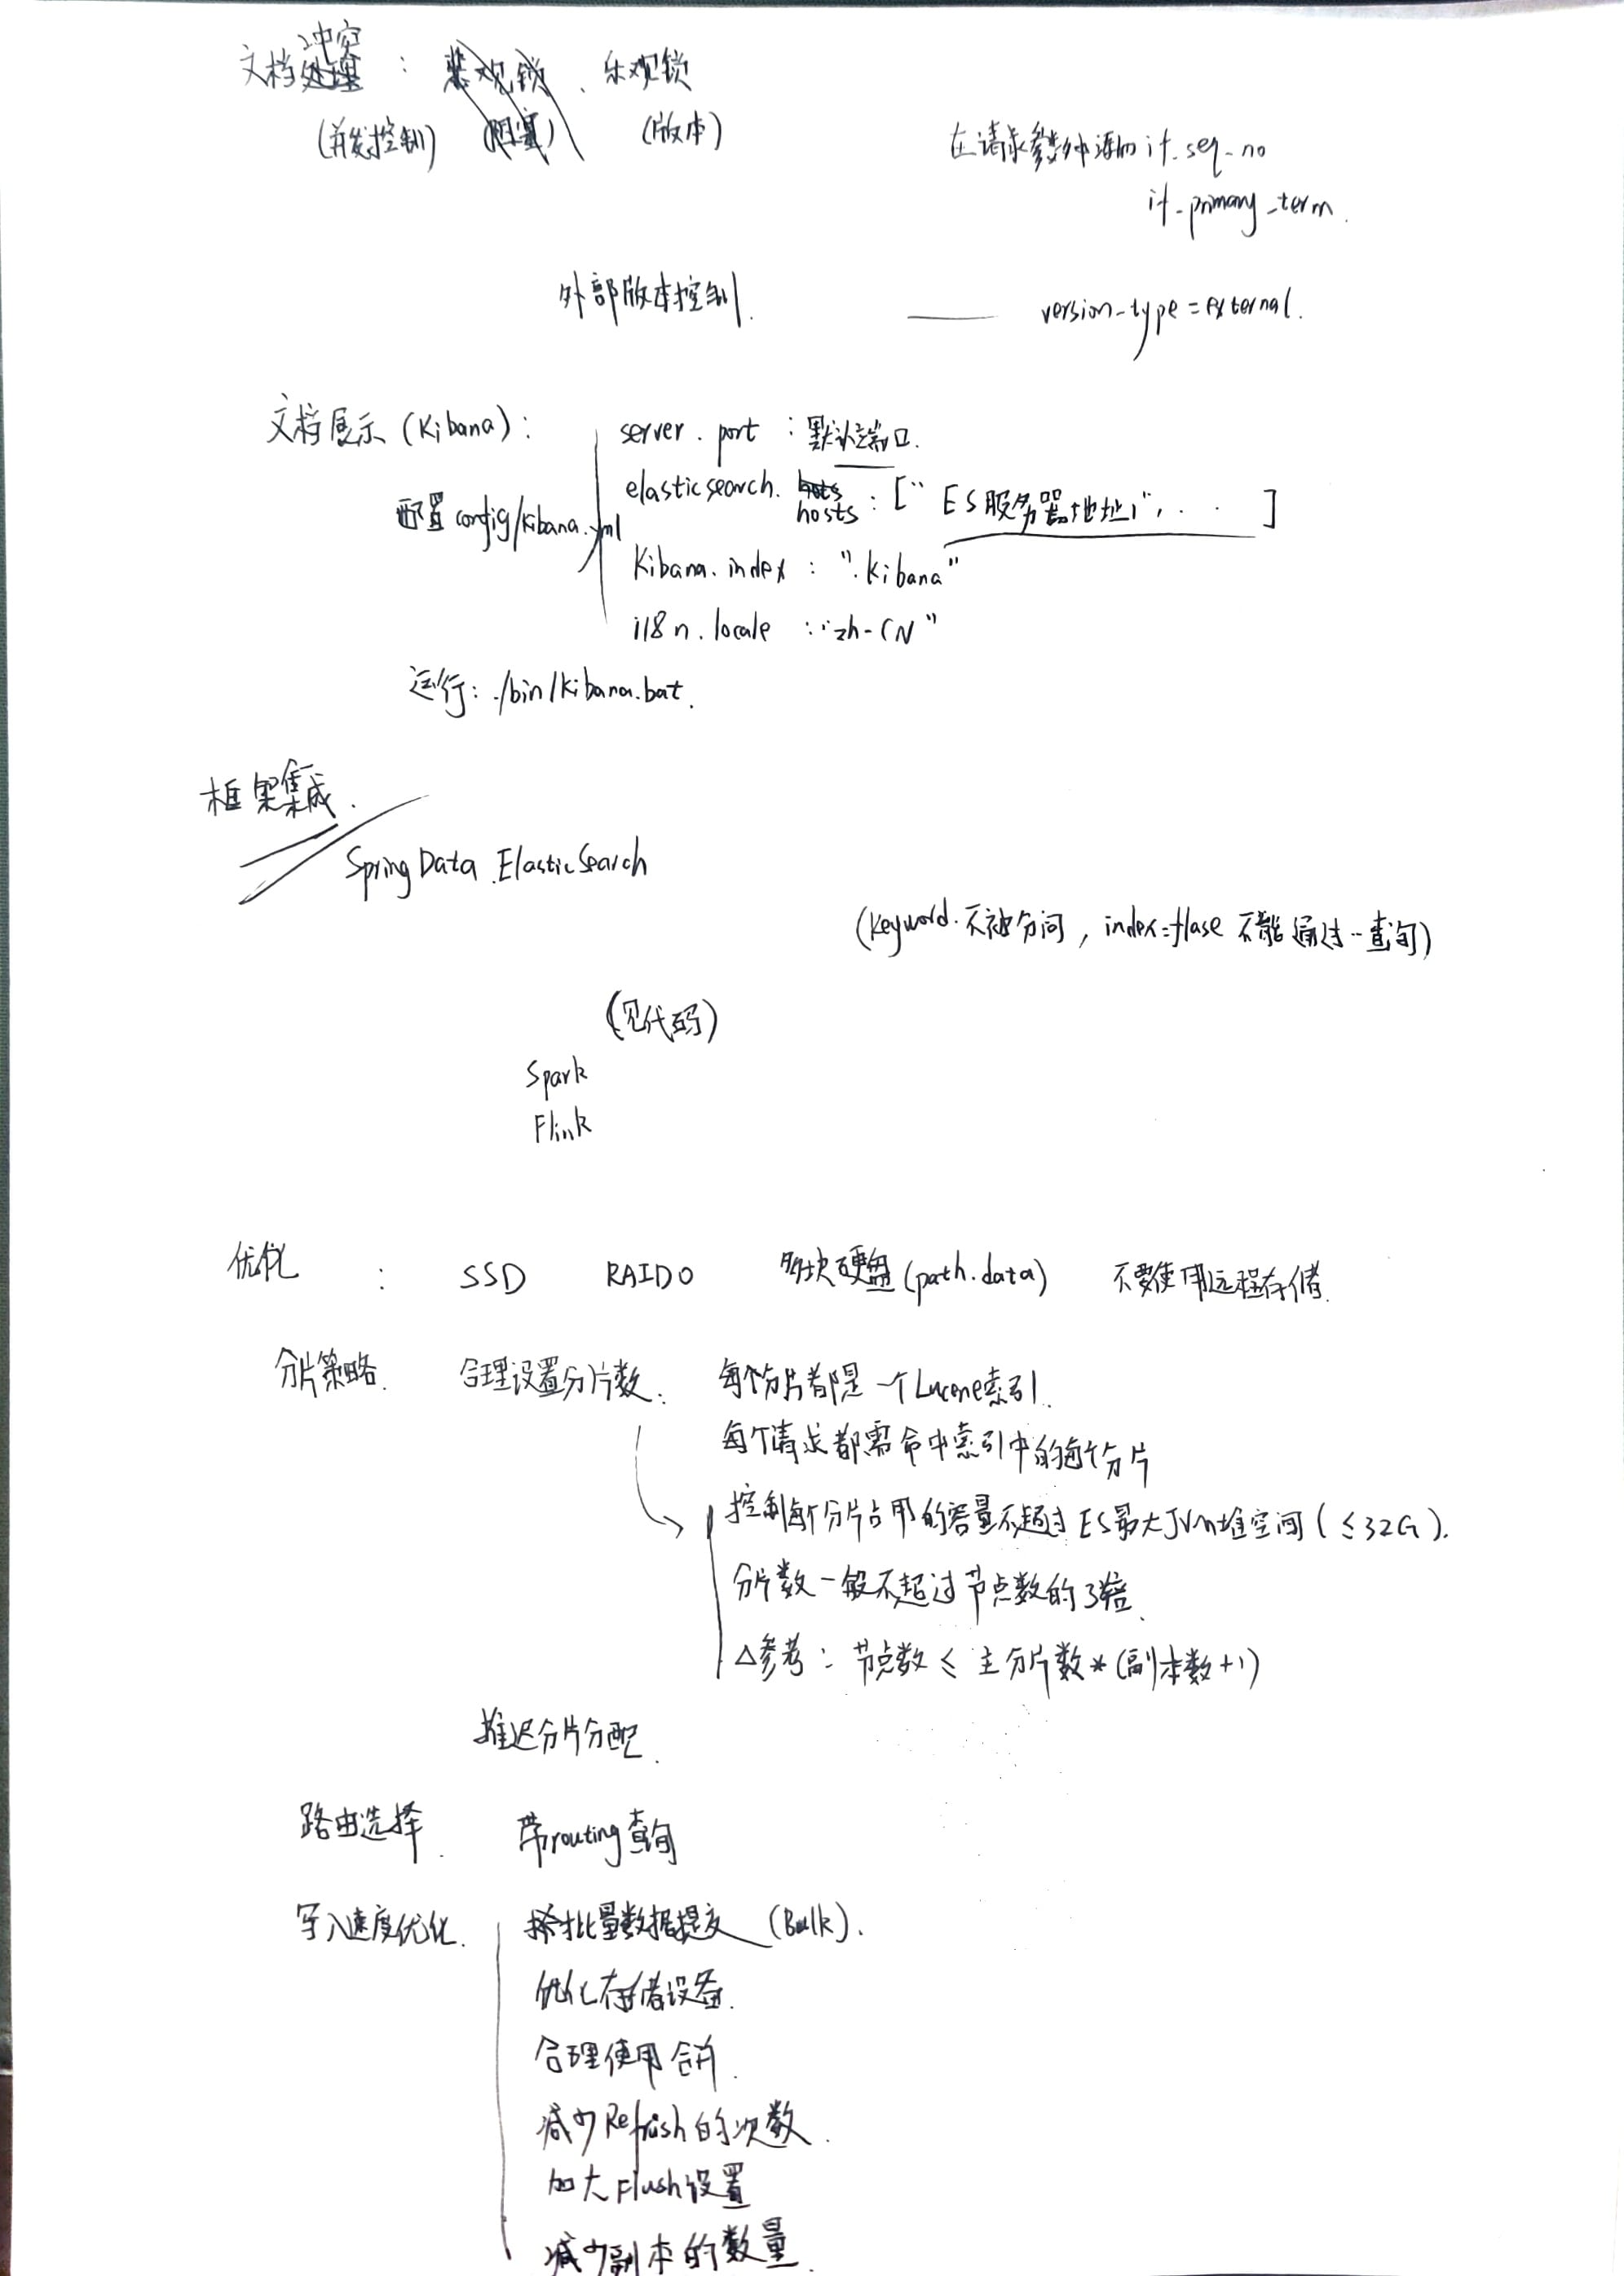 文档冲突 : 悲观锁 、乐观锁
(并发控制) (阻塞) (版本)
在请求参数中添加 if_seq_no
if_primary_term.
外部版本控制. —— version-type=external.
文档展示 (Kibana) :
server.port : 默认端口.
elasticsearch. hosts : [" ES服务器地址1", . . ]
配置 config/kibana.yml
Kibana.index : ".kibana"
i18n.locale : "zh-CN"
运行: ./bin/kibana.bat.
框架集成.
Spring Data ElasticSearch
(keyword.不被分词, index=flase 不能通过--查询)
(见代码)
Spark
Flink
优化 : SSD RAID0 多块硬盘(path.data) 不要使用远程存储.
分片策略. 合理设置分片数: 每个分片都是一个Lucene索引.
每个请求都需命中索引中的每个分片
控制每个分片占用的容量不超过ES最大JVM堆空间 (≤32G).
分片数一般不超过节点数的3倍.
△参考: 节点数 ≤ 主分片数*(副本数+1)
推迟分片分配.
路由选择. 带routing查询
写入速度优化. 批量数据提交 (Bulk).
优化存储设备.
合理使用合并.
减少Refresh的次数.
加大Flush设置
减少副本的数量.